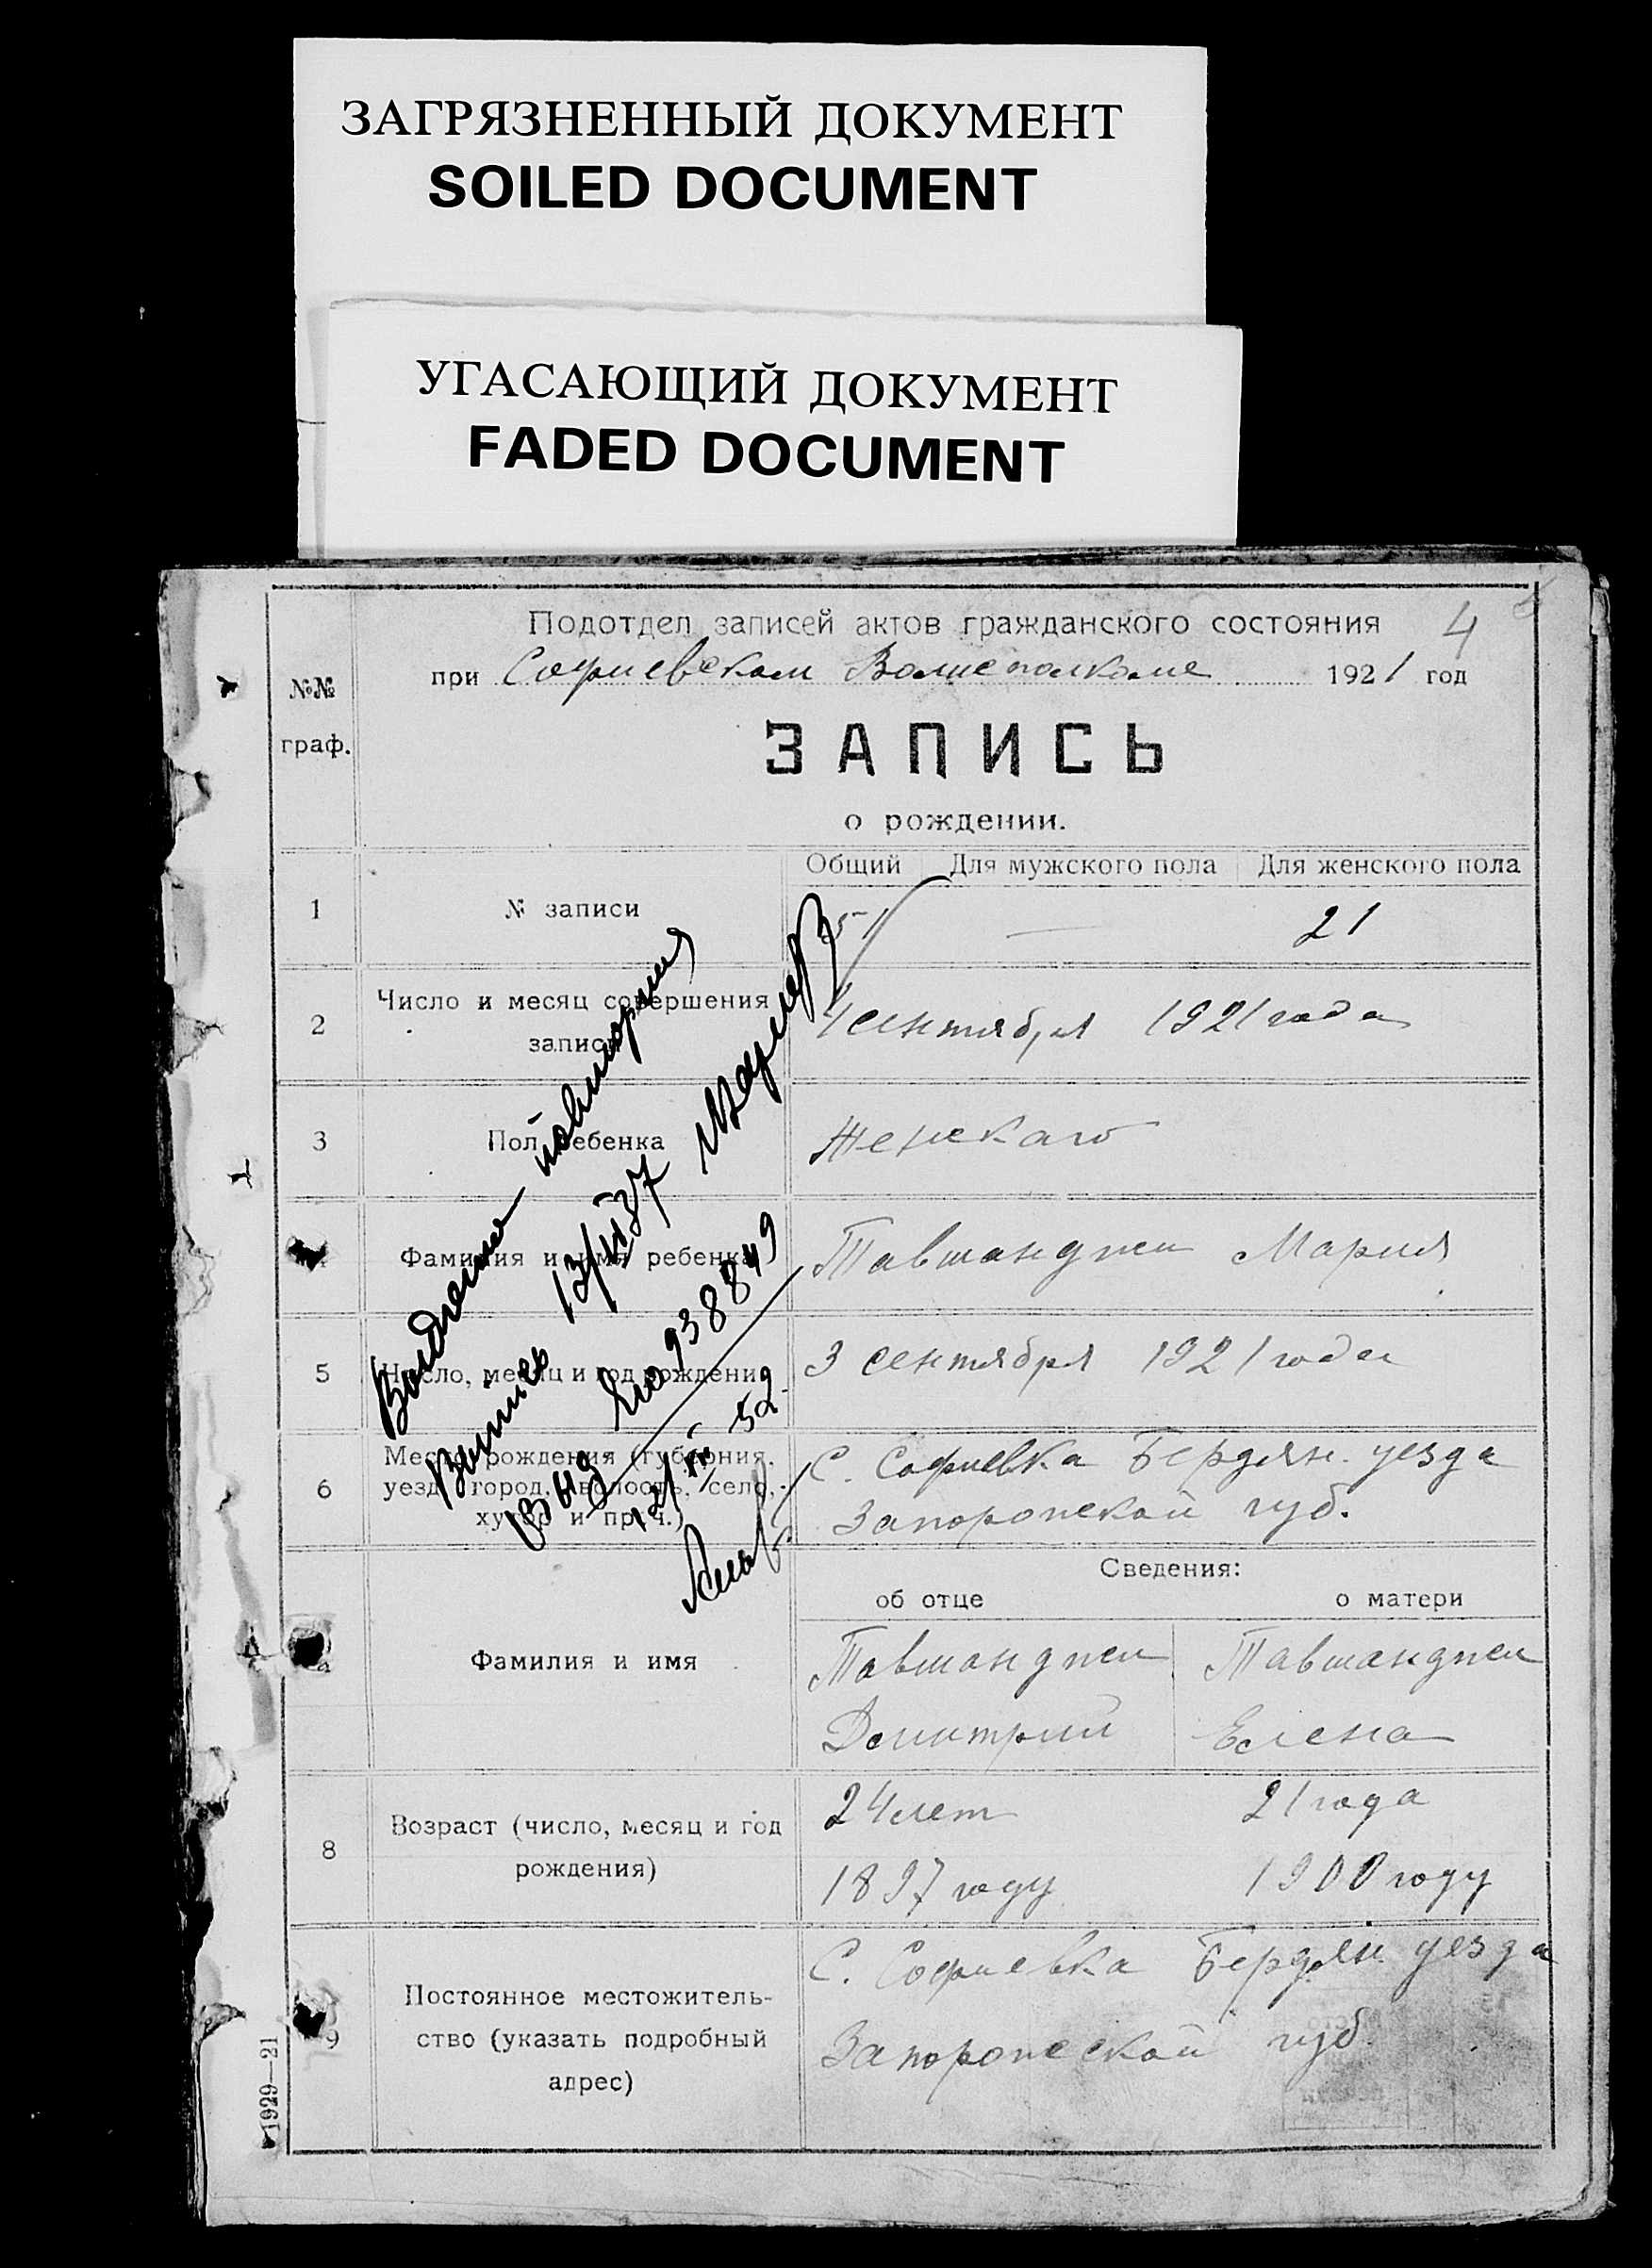 ЗАГРЯЗНЕННЫЙ ДОКУМЕНТ
SOILED DOCUMENT
УГАСАЮЩИЙ ДОКУМЕНТ
FADED DOCUMENT
4
Подотдел записей актов гражданского состояния
при Софиевском Волисполкоме 1921 год
№№ граф.
ЗАПИСЬ
о рождении.
Общий Для мужского пола Для женского пола
1 № записи 51 — 21
2 Число и месяц совершения записи 4 сентября 1921 года
3 Пол ребенка Женскаго
Фамилия и имя ребенка Тавшанджи Мария
5 Число, месяц и год рождения 3 сентября 1921 года
6 Место рождения (губерния, уезд, город, волость, село, хутор и проч.)
С. Софиевка Бердян. уезда
Запорожской губ.
Сведения:
об отце о матери
Фамилия и имя
Тавшанджи Тавшанджи
Дмитрий Елена
8 Возраст (число, месяц и год рождения)
24 лет 21 года
1897 году 1900 году
9 Постоянное местожительство (указать подробный адрес)
С. Софиевка Бердян. уезда
Запорожской губ.
повторна
938849
52
1929—21